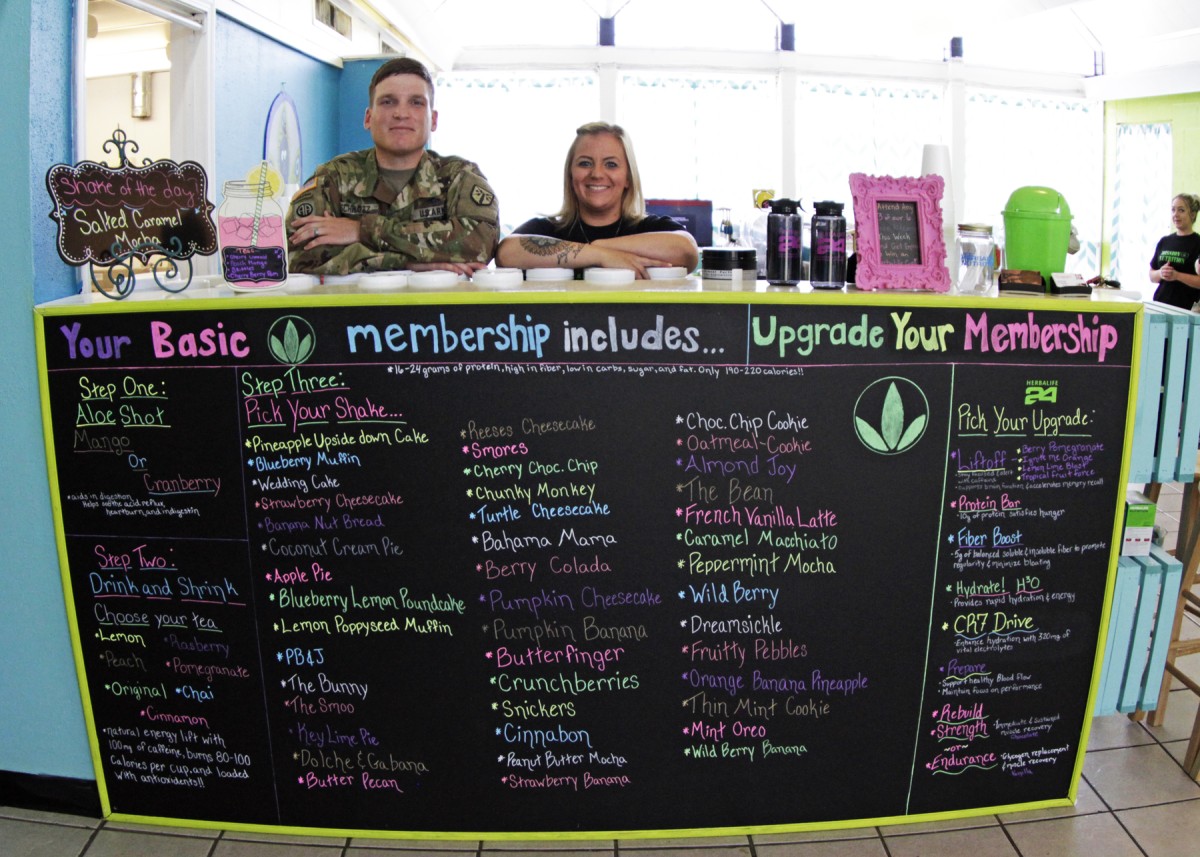 Shake of the day!
Salted Caramel
Mocha
U.S. ARMY
24
24
Your Basic membership includes...
Upgrade Your Membership
*16-24 grams of protein, high in fiber, low in carbs, sugar, and fat. Only 190-220 calories!!
Step One:
Aloe Shot
Mango
Or
Cranberry
*aids in digestion
Helps soothe acid reflux,
heartburn, and indigestin
Step Two:
Drink and Shrink
Choose your tea
*Lemon
*Rasberry
*Peach
*Pomegranate
*Original *Chai
*Cinnamon
*natural energy lift with
100mg of caffeine, burns 80-100
Calories per cup, and loaded
with antioxidents!!
Step Three:
Pick Your Shake...
*Pineapple Upside down Cake
*Blueberry Muffin
*Wedding Cake
*Strawberry Cheesecake
*Banana Nut Bread
*Coconut Cream Pie
*Apple Pie
*Blueberry Lemon Poundcake
*Lemon Poppyseed Muffin
*PB&J
*The Bunny
*The Smoo
*Key Lime Pie
*Dolche & Gabana
*Butter Pecan
*Reeses Cheesecake
*Smores
*Cherry Choc. Chip
*Chunky Monkey
*Turtle Cheesecake
*Bahama Mama
*Berry Colada
*Pumpkin Cheesecake
*Pumpkin Banana
*Butterfinger
*Crunchberries
*Snickers
*Cinnabon
*Peanut Butter Mocha
*Strawberry Banana
*Choc. Chip Cookie
*Oatmeal-Cookie
*Almond Joy
*The Bean
*French Vanilla Latte
*Caramel Macchiato
*Peppermint Mocha
*Wild Berry
*Dreamsickle
*Fruity Pebbles
*Orange Banana Pineapple
*Thin Mint Cookie
*Mint Oreo
*Wild Berry Banana
HERBALIFE
24
Pick Your Upgrade:
*Liftoff
*Berry Pomegranate
*Ignite me Orange
*Lemon Lime Blast
*Tropical fruit force
*Protein Bar
-10g of protein, satisfies hunger
*Fiber Boost
-5g of balanced soluble & insoluble fiber to promote
regularity & minimize bloating
*Hydrate! H³O
-Provides rapid hydration & energy
*CR7 Drive
-Enhance hydration with 320mg of
vital electrolytes
*Prepare
-Support healthy Blood flow
-Maintain focus on performance
*Rebuild
*Strength
-Immediate & sustained
muscle recovery
~or~
*Endurance
-Glycogen replacement
& muscle recovery